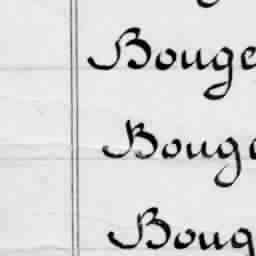 Bouge
Bouge
Boug